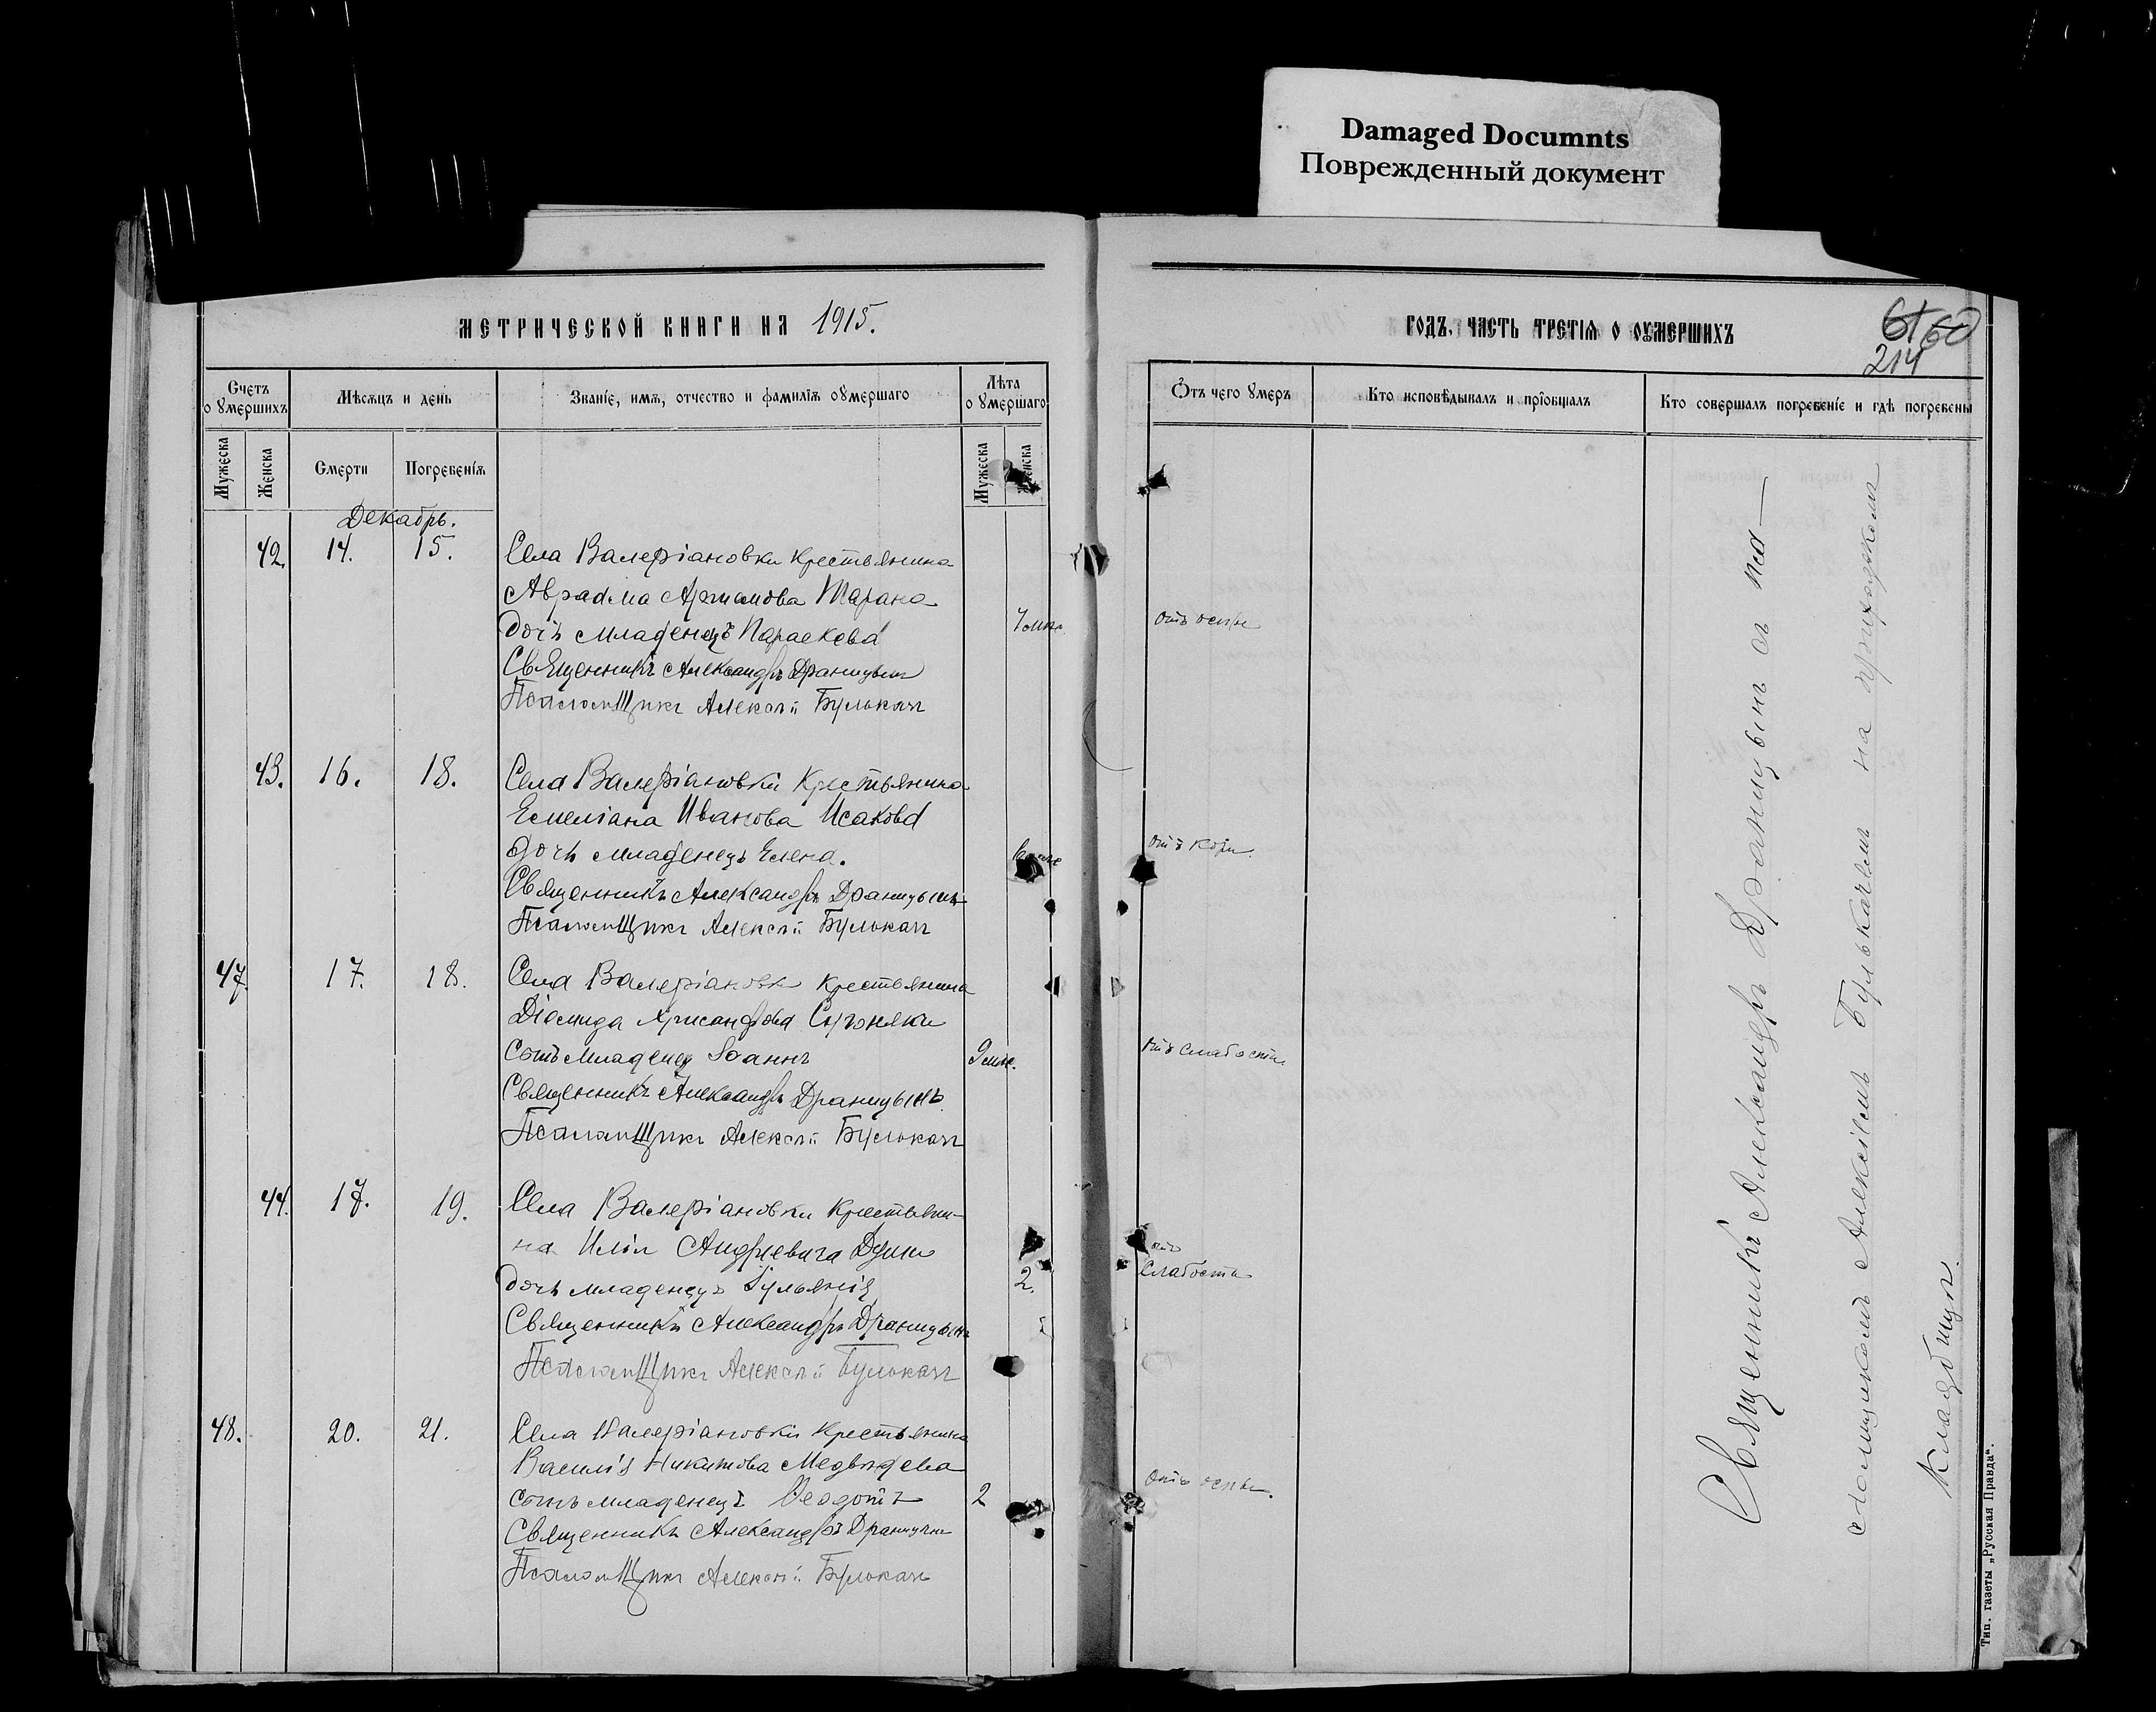 Damaged Documnts
Поврежденный документ
МЕТРИЧЕСКОЙ КНИГИ НА 1915.
ГОДЪ, ЧАСТЬ ТРЕТІЯ О ОУМЕРШИХЪ
61 60
214
Счетъ о умершихъ
Мѣсяцъ и день
Званіе, имя, отчество и фамилія оумершаго
Лѣта о умершаго
Отъ чего умеръ
Кто исповѣдывалъ и пріобщалъ
Кто совершалъ погребеніе и гдѣ погребены
Мужеска
Женска
Смерти
Погребенія
Мужеска
Женска
Декабрь.
42. 14. 15. Села Валеріановки крестьянина
Авраама Артамова Шарана
дочь младенецъ Параскева отъ оспы
Священникъ Александръ Драницынъ
Псаломщикъ Алексѣй Булькачъ
43. 16. 18. Села Валеріановки крестьянина
Емеліана Иванова Исакова
дочь младенецъ Елена. отъ кори.
Священникъ Александръ Драницынъ
Псаломщикъ Алексѣй Булькачъ
47. 17. 18. Села Валеріановк крестьянина
Діомида Хрисанфова
Сынъ младенец Іоаннъ 9 мес. отъ слабости
Священникъ Александръ Драницынъ
Псаломщикъ Алексѣй Булькачъ
44. 17. 19. Села Валеріановки крестьяни-
на Иліи Андреевича
дочь младенецъ Іульянія 2. отъ слабости
Священникъ Александръ Драницынъ
Псаломщикъ Алексѣй Булькачъ
48. 20. 21. Села Валеріановки крестьянина
Василія Никитова Медвѣдева
сынъ младенецъ Ѳеодотъ 2 отъ оспы.
Священникъ Александръ Драницынъ
Псаломщикъ Алексѣй Булькачъ
Священникъ Александръ Драницынъ съ пса—
ломщикомъ Алексіемъ Булькачемъ на приходскомъ
кладбищѣ.
Тип. газеты „Русская Правда“.